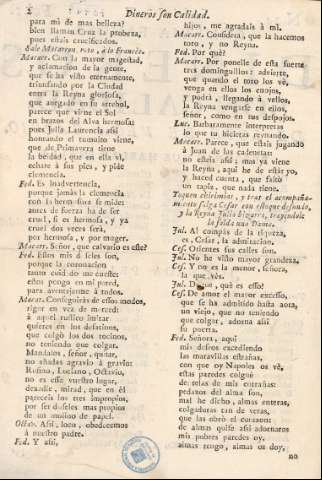 2
Dineros son Calidad.
para mi de mas belleza?
bien llaman Cruz la probeza,
pues estais crucificados.
Sale Macarron roto, a lo Francès.
Macar. Con la mayor magestad,
y aclamacion de la gente,
que se ha visto eternamente,
triunfando por la Ciudad
entra la Reyna gloriosa,
que
en
parece que viene el Sol
en brazos del Alva hermosa:
pues Julia Laurencia assi
honrando el tumulto viene,
que de Primavera tiene
la beldad, que en ella vì,
echate à sus pies, y pide
clemencia.
Fed. Es inadvertencia,
porque jamàs la clemencia
con la hermosura se mide:
antes de fuerza ha de ser
cruel, si es hermosa, y ya
cruel dos veces serà,
por hermosa, y por muger.
Macar. Señor, que es esso es este?
Fed. Estos mis deseos son,
porque la coronacion
tanto cuidado me cueste:
estos pongo en mi pared,
para aventajarme à todos.
Macar. Conseguiràs de essos modos,
rigor en vez de merced:
à aquel ruestro imitar
quieres en los desatinos,
que colgò los dos tocinos,
no teniendo que colgar.
Mandalos, señor, quitar,
no añadas agravio à gravio:
Rufino, Luciano, Octavio,
no es esse vuestro lugar,
dexadle, mirad, que en èl
pareceis los tres impropios,
por ser deseles mas propios
de un molino de papel.
Octav. Assi, loco, obedecemos
à nuestro padre.
Fed. Y assi,
hijos, me agradais à mì.
Macar. Considera, que la hacemos
toro, y no Reyna.
Fed. Por què?
Macar. Por ponelle de esta suerte
tres dominguillos: advierte,
que quando el toro los vè,
venga en ellos los enojos,
y podrà, llegando à vellos,
la Reyna vengarse en ellos,
señor, como en tus despojos.
Luc. Barbaramente interpreta
lo que tu hicieras reynando.
Macar. Parece, que estais jugando
à Juan de las cadenetas:
no esteis assi; mas ya viene
la Reyna, aqui he de estàr yo,
y haced cuenta, que faltò
un tapiz, que nada tiene.
Toquen chirimias, y trae el acompaña-
miento salga Cesar con estoque desnudo,
y la Reyna Julia bizarra, trayendole
la falda una Dama.
Jul. Al compàs de la riqueza,
es, Cesar, la admiracion.
Ces. Oñentes sus calles son.
Jul. No he visto mayor grandeza.
Ces. Y no es la menor, señora,
la que vès.
Jul. què es esso?
Ces. De amor el mayor excesso,
que se ha admitido hasta aora,
un viejo, que no teniendo
que colgar, adorna assi
su puerta.
Fed. Señora, aqui
mis deseos excediendo
las maravillas estrañas,
con que oy Napoles os vè,
estas paredes colguè
de telas de mis entrañas:
pedazos del alma son,
mal he dicho, almas enteras,
colgaduras tan de veras,
que las obrò el corazon:
de almas quise assi adornaros
mis pobres paredes oy,
almas tengo, almas os doy,
no